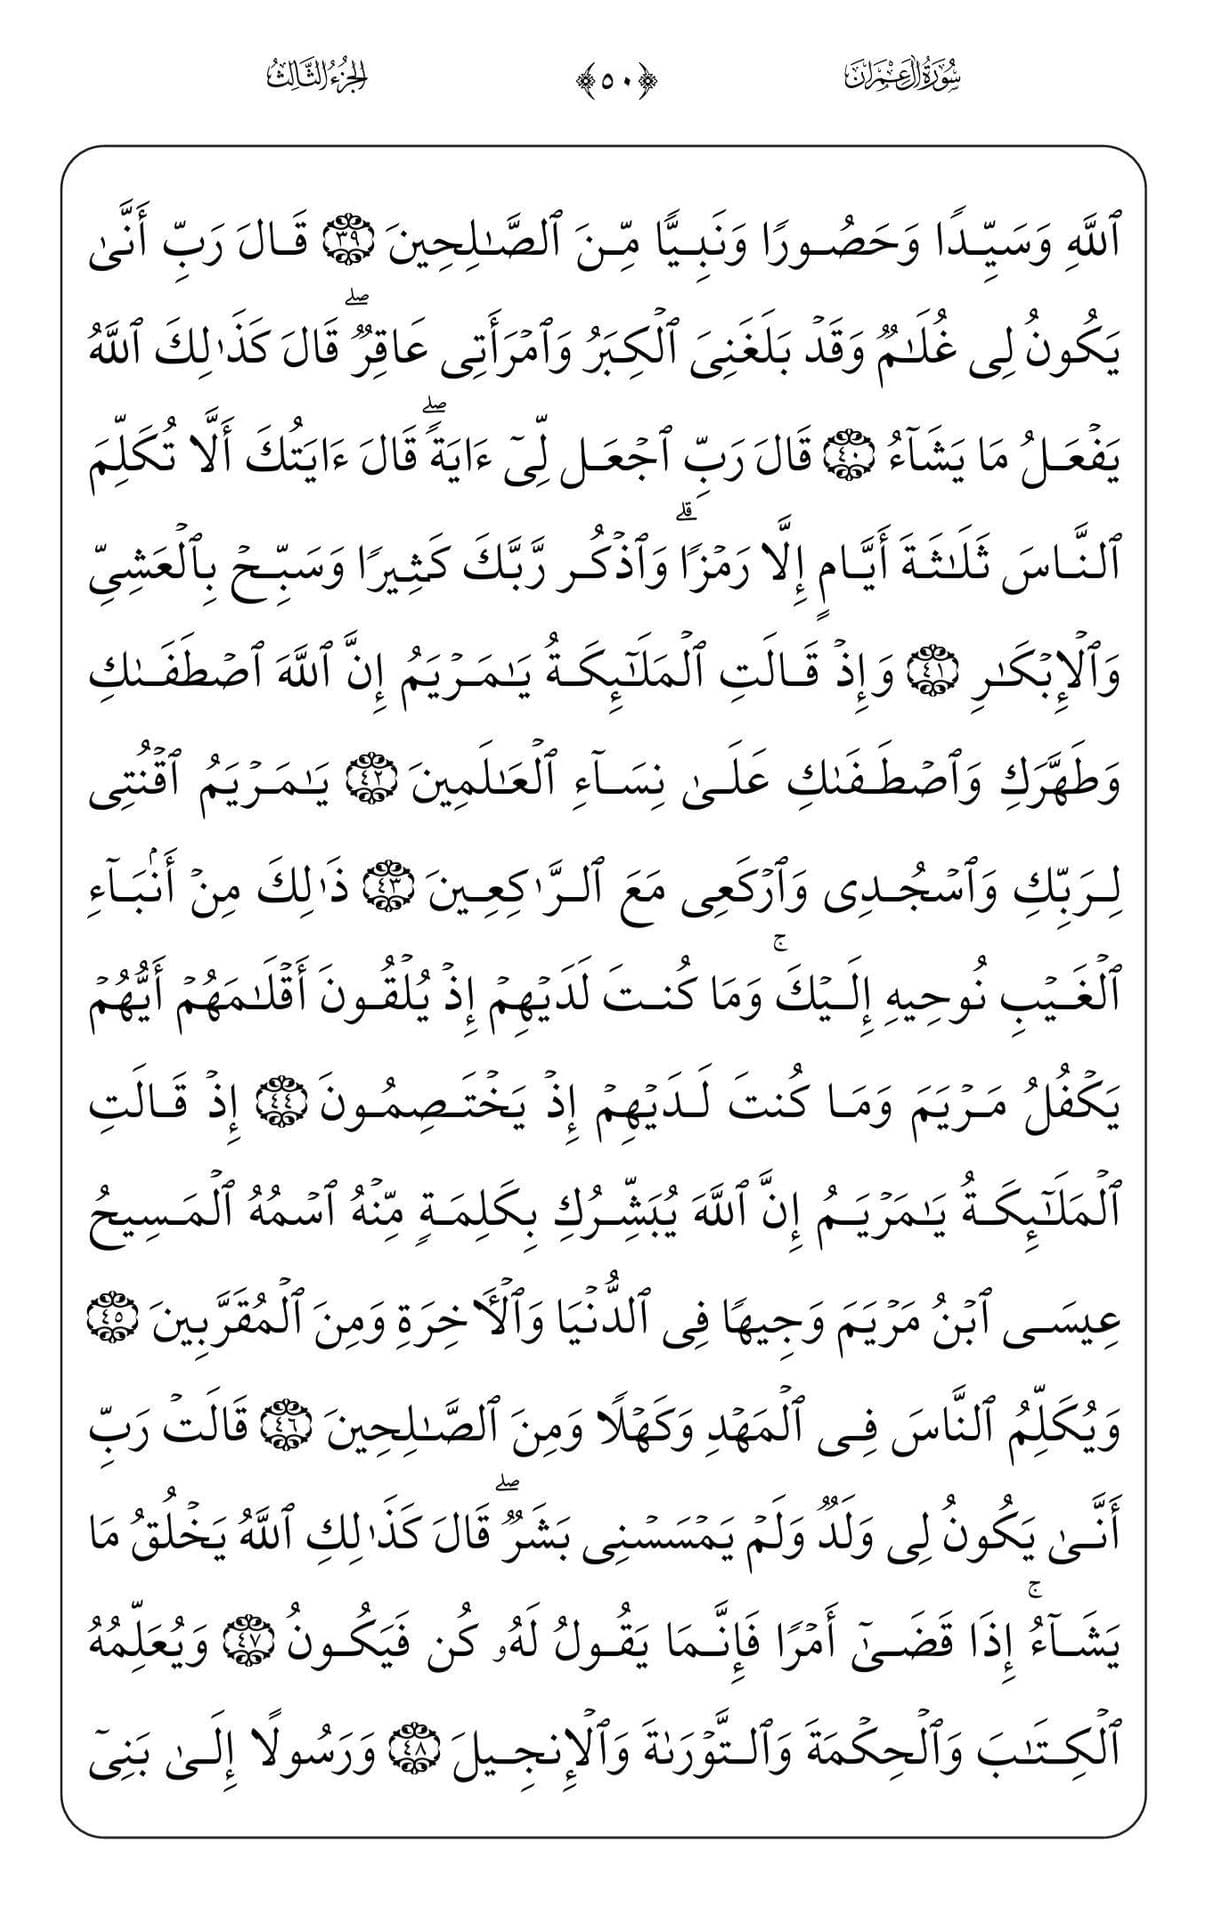 سُورَةُ آلِ عِمْرَان ﴿٥٠﴾ الجُزْءُ الثَّالِثُ
ٱللَّهِ وَسَيِّدًا وَحَصُورًا وَنَبِيًّا مِّنَ ٱلصَّٰلِحِينَ ٣٩ قَالَ رَبِّ أَنَّىٰ
يَكُونُ لِى غُلَٰمٌ وَقَدْ بَلَغَنِىَ ٱلْكِبَرُ وَٱمْرَأَتِى عَاقِرٌ ۖ قَالَ كَذَٰلِكَ ٱللَّهُ
يَفْعَلُ مَا يَشَآءُ ٤٠ قَالَ رَبِّ ٱجْعَل لِّىٓ ءَايَةً ۖ قَالَ ءَايَتُكَ أَلَّا تُكَلِّمَ
ٱلنَّاسَ ثَلَٰثَةَ أَيَّامٍ إِلَّا رَمْزًا ۗ وَٱذْكُر رَّبَّكَ كَثِيرًا وَسَبِّحْ بِٱلْعَشِىِّ
وَٱلْإِبْكَٰرِ ٤١ وَإِذْ قَالَتِ ٱلْمَلَٰٓئِكَةُ يَٰمَرْيَمُ إِنَّ ٱللَّهَ ٱصْطَفَىٰكِ
وَطَهَّرَكِ وَٱصْطَفَىٰكِ عَلَىٰ نِسَآءِ ٱلْعَٰلَمِينَ ٤٢ يَٰمَرْيَمُ ٱقْنُتِى
لِرَبِّكِ وَٱسْجُدِى وَٱرْكَعِى مَعَ ٱلرَّٰكِعِينَ ٤٣ ذَٰلِكَ مِنْ أَنۢبَآءِ
ٱلْغَيْبِ نُوحِيهِ إِلَيْكَ ۚ وَمَا كُنتَ لَدَيْهِمْ إِذْ يُلْقُونَ أَقْلَٰمَهُمْ أَيُّهُمْ
يَكْفُلُ مَرْيَمَ وَمَا كُنتَ لَدَيْهِمْ إِذْ يَخْتَصِمُونَ ٤٤ إِذْ قَالَتِ
ٱلْمَلَٰٓئِكَةُ يَٰمَرْيَمُ إِنَّ ٱللَّهَ يُبَشِّرُكِ بِكَلِمَةٍ مِّنْهُ ٱسْمُهُ ٱلْمَسِيحُ
عِيسَى ٱبْنُ مَرْيَمَ وَجِيهًا فِى ٱلدُّنْيَا وَٱلْأَخِرَةِ وَمِنَ ٱلْمُقَرَّبِينَ ٤٥
وَيُكَلِّمُ ٱلنَّاسَ فِى ٱلْمَهْدِ وَكَهْلًا وَمِنَ ٱلصَّٰلِحِينَ ٤٦ قَالَتْ رَبِّ
أَنَّىٰ يَكُونُ لِى وَلَدٌ وَلَمْ يَمْسَسْنِى بَشَرٌ ۖ قَالَ كَذَٰلِكِ ٱللَّهُ يَخْلُقُ مَا
يَشَآءُ ۚ إِذَا قَضَىٰٓ أَمْرًا فَإِنَّمَا يَقُولُ لَهُۥ كُن فَيَكُونُ ٤٧ وَيُعَلِّمُهُ
ٱلْكِتَٰبَ وَٱلْحِكْمَةَ وَٱلتَّوْرَىٰةَ وَٱلْإِنجِيلَ ٤٨ وَرَسُولًا إِلَىٰ بَنِىٓ